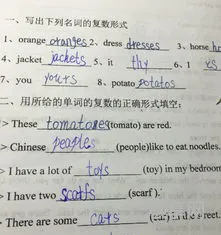 一、写出下列名词的复数形式
1、orange oranges 2、dress dresses 3、horse
4、jacket jackets 5、it thy 6、I
7、you yours 8、potato potatos
二、用所给的单词的复数的正确形式填空：
> These tomatoes(tomato) are red.
> Chinese peaples (people)like to eat noodles.
> I have a lot of toys (toy) in my bedroom
> I have two scarfs (scarf ).
> There are some cars (car) in the street.